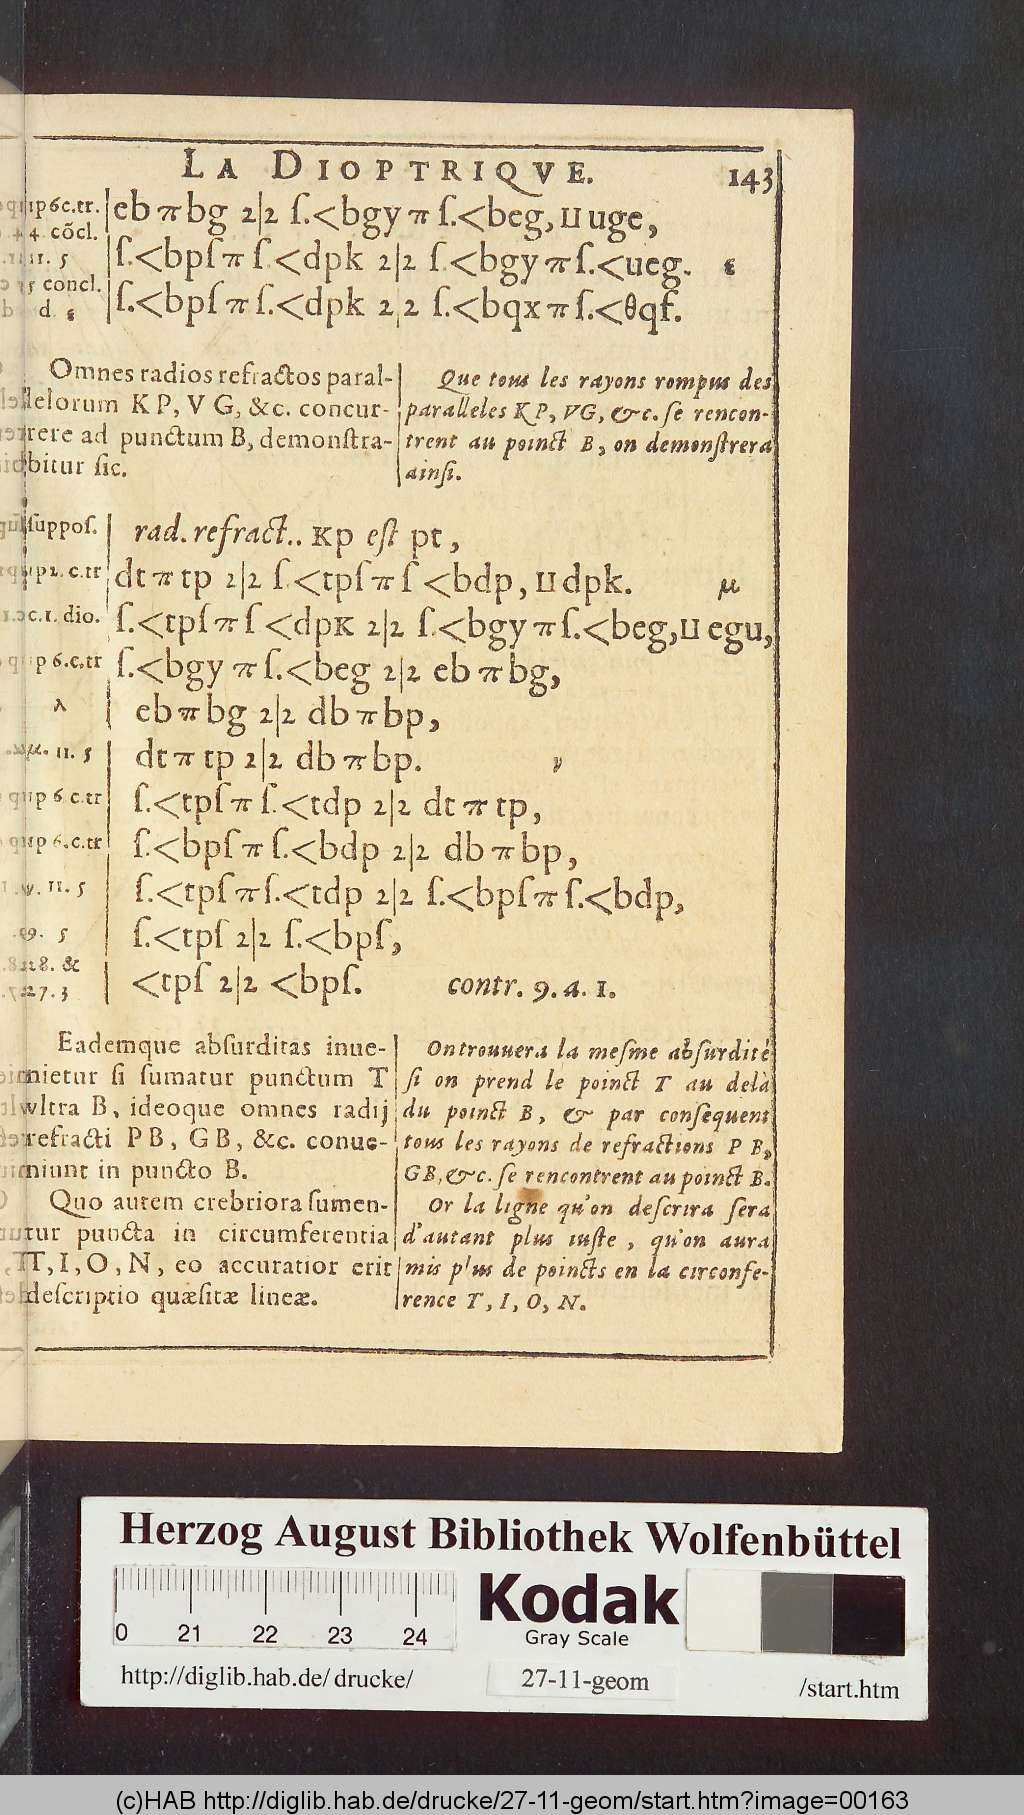 LA DIOPTRIQVE. 143
p 6 c.tr. | eb π bg 2|2 ſ.<bgy π ſ.<beg, ⊔ uge,
4 cõcl.
11. 5 | ſ.<bpſ π ſ.<dpk 2|2 ſ.<bgy π ſ.<ueg. ε
concl.
d. ε | ſ.<bpſ π ſ.<dpk 2|2 ſ.<bqx π ſ.<θqf.
Omnes radios refractos paral-
lelorum KP, VG, &c. concur-
rere ad punctum B, demonſtra-
bitur ſic.
Que tous les rayons rompus des
paralleles KP, VG, &c. ſe rencon-
trent au poinct B, on demonſtrera
ainſi.
ſuppoſ. | rad. refract.. Kp eſt pt,
p 2. c.tr | dt π tp 2|2 ſ.<tpſ π ſ <bdp, ⊔ dpk. μ
c.1. dio. | ſ.<tpſ π ſ <dpK 2|2 ſ.<bgy π ſ.<beg, ⊔ egu,
p 6.c.tr | ſ.<bgy π ſ.<beg 2|2 eb π bg,
λ | eb π bg 2|2 db π bp,
μ. 11. 5 | dt π tp 2|2 db π bp. ν
p 6 c.tr | ſ.<tpſ π ſ.<tdp 2|2 dt π tp,
p 6.c.tr | ſ.<bpſ π ſ.<bdp 2|2 db π bp,
ν. 11. 5 | ſ.<tpſ π ſ.<tdp 2|2 ſ.<bpſ π ſ.<bdp,
9. 5 | ſ.<tpſ 2|2 ſ.<bpſ,
28. &
27. 3 | <tpſ 2|2 <bpſ. contr. 9. a. 1.
Eademque abſurditas inue-
nietur ſi ſumatur punctum T
vltra B, ideoque omnes radij
refracti PB, GB, &c. conue-
niunt in puncto B.
Quo autem crebriora ſumen-
tur puncta in circumferentia
T, I, O, N, eo accuratior erit
deſcriptio quæſitæ lineæ.
On trouuera la meſme abſurdité
ſi on prend le poinct T au delà
du poinct B, & par conſequent
tous les rayons de refractions PB,
GB, &c. ſe rencontrent au poinct B.
Or la ligne qu'on deſcrira ſera
d'autant plus iuſte, qu'on aura
mis plus de poincts en la circonfe-
rence T, I, O, N.
Herzog August Bibliothek Wolfenbüttel
0 21 22 23 24
Kodak
Gray Scale
http://diglib.hab.de/drucke/ 27-11-geom /start.htm
(c)HAB http://diglib.hab.de/drucke/27-11-geom/start.htm?image=00163